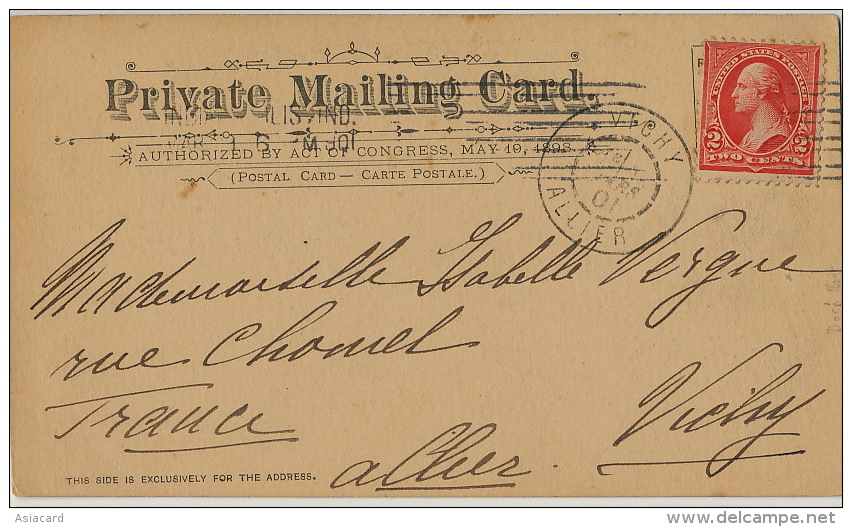 Private Mailing Card.
AUTHORIZED BY ACT OF CONGRESS, MAY 19, 1898.
(POSTAL CARD — CARTE POSTALE.)
UNITED STATES POSTAGE
2 2
TWO CENTS
LIS, IND.
VICHY
01
ALLIER
Mademoiselle Isabelle Vergne
rue Chomel
Vichy
France
allier.
THIS SIDE IS EXCLUSIVELY FOR THE ADDRESS.
Asiacard
www.delcampe.net